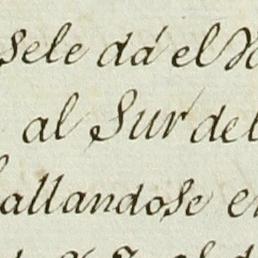 sele dá el
al Sur del
allandose e